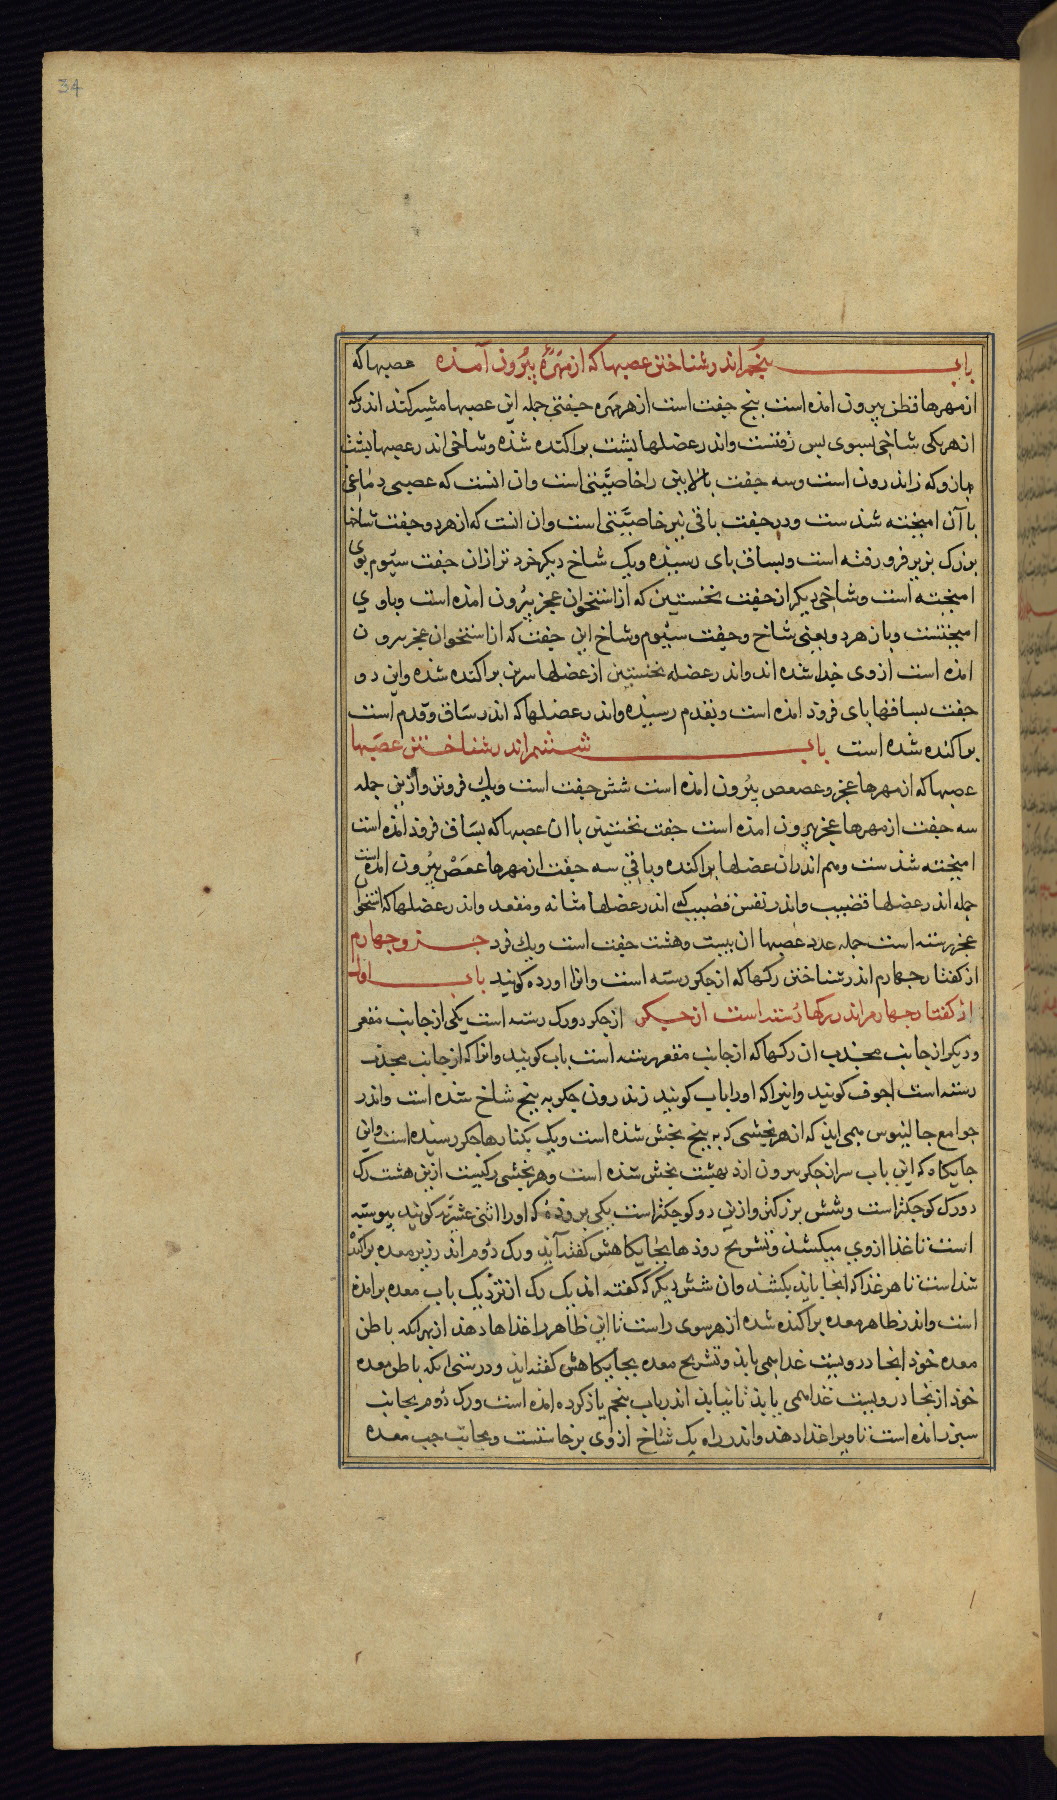 34
باب پنجم اندر شناختن عصبها که از مهره بیرون آمذه عصبها که
از مهرها قطن بیرون امذه است پنج جفت است از هر مهره جفتی جمله این عصبها مشترکند اندر یکه
از هر یکی شاخی بسوی پس رفتست واندر عضلها پشت پراکنده شذه وشاخی اندر عصبها پشت
وسه جفت بالایین را خاصیّتی است وان انست که عصبی دماغی
باآن امیخته شذست ودو جفت باقی نیز خاصیّتی است وان انست که از هر دو جفت شاخها
بزرک بزیر فرو رفته است وبساق بای رسیذه ویک شاخ دیکر خرد تر ازان جفت سیوم بوی
امیخته است وشاخی دیکر از جفت نخستین که از استخوان عجز بیرون امذه است وباوی
امیختست وبازهردو یعنی شاخ وجفت سیوم وشاخ این جفت که از استخوان عجز بیرون
امذه است از وی جذا شده اند واندر عضله نخستین از عضلها سرین پراکنده شذه واین دو
جفت بساقها بای فروذ امذه است وبقدم رسیذه واندر عضلها که اندر ساق وقدم است
پراکنده شده است باب ششم اندر شناختن عصبها
عصبها که از مهرها عجز وعصعص بیرون امذه است شش جفت است ویک فرد وازین جمله
سه جفت از مهرها عجز بیرون امذه است جفت نخستین باان عصبها که بساق فروذ امذه است
امیخته شذست وهم اندران عضلها پراکنده وباقی سه جفت از مهرها عصعص بیرون امذه است
جمله اندر عضلها قضیب واندر نفس قضیب که اندر عضلها مثانه ومقعد واندر عضلها که استخوان
عجز رسته است جمله عدد عصبها ان بیست وهشت جفت است ویک فرد جزو چهارم
از کفتار چهارم اندر شناختن رکها که از جکر رسته است وانرا اورده کویند باب اول
از کفتار چهارم اندر رکها رسته است از جیکر از جکر دورک رسته است یکی از جانب مقعر
ودیکر از جانب محدب ان رکها که از جانب مقعر رسته است باب کویند وانرا که از جانب محدب
رسته است اجوف کویند واینرا که اورا باب کویند زندرون جکر به پنج شاخ شده است واندر
جوامع جالینوس همی ایذ که از هر بخشی که به پنج بخش شذه است ویک بکنارها جکر رسیذه است واین
جایکاه که این باب سر از جکر بیرون ارد بهشت بخش شده است وهر بخشی رکیست ازین هشت رک
دورک کوچکتراست وشش بزرکتر وازین دو کوچکتر است یکی برودهٔ که اورا اثنی عشری کویند پیوسته
است تا غذا ازوی میکشذ وتشریح روذها بجایکاهش کفته آید ورک دوم اندر زیر معده پراکنده
شذاست تا هر غذا که انجا یابد بکشذ وان شش دیکر که کفته امد یک رک از نزدیک باب معده برامذه
است واندر ظاهر معده پراکنده شده از هر سوی راست تا این ظاهر را غذاها دهد از بهر انکه باطن
معده خوذ انجا دروبیست غدا همی یابذ وتشریح معده بجایکاهش کفته اید ودرستی انکه باطن معده
خوذ از بنجا دروبیست غدا همی یابذ تا نیابد اندر باب پنجم یاذ کرده امذه است ورک دوم بجانب
سپرز امذه است تا ویرا غذا دهذ واندر راه یک شاخ از وی برخاستست وبجانب چپ معده